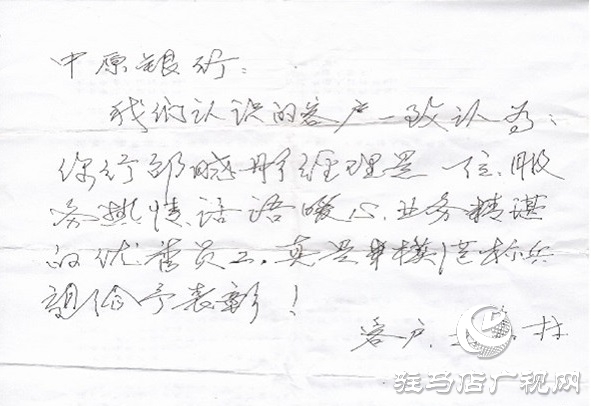 中原银行:
我们认识的客户一致认为:
你行邵晓彤经理是一位、服
务热情、话语暖心、业务精湛
的优秀员工,真是模范标兵
望给予表彰!
客户: 林
驻马店广视网